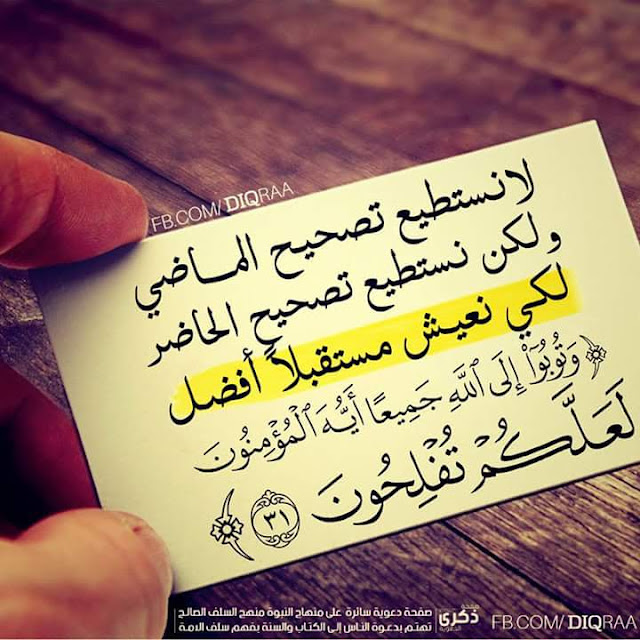 FB.COM/ DIQRAA
لا نستطيع تصحيح الماضي
ولكن نستطيع تصحيح الحاضر
لكي نعيش مستقبلاً أفضل
﴿ وَتُوبُوٓا۟ إِلَى ٱللَّهِ جَمِيعًا أَيُّهَ ٱلْمُؤْمِنُونَ
لَعَلَّكُمْ تُفْلِحُونَ ٣١ ﴾
صفحة ذكرى الدعوية
صفحة دعوية سائرة على منهاج النبوة منهج السلف الصالح
تهتم بدعوة الناس إلى الكتاب والسنة بفهم سلف الامة
FB.COM/ DIQRAA